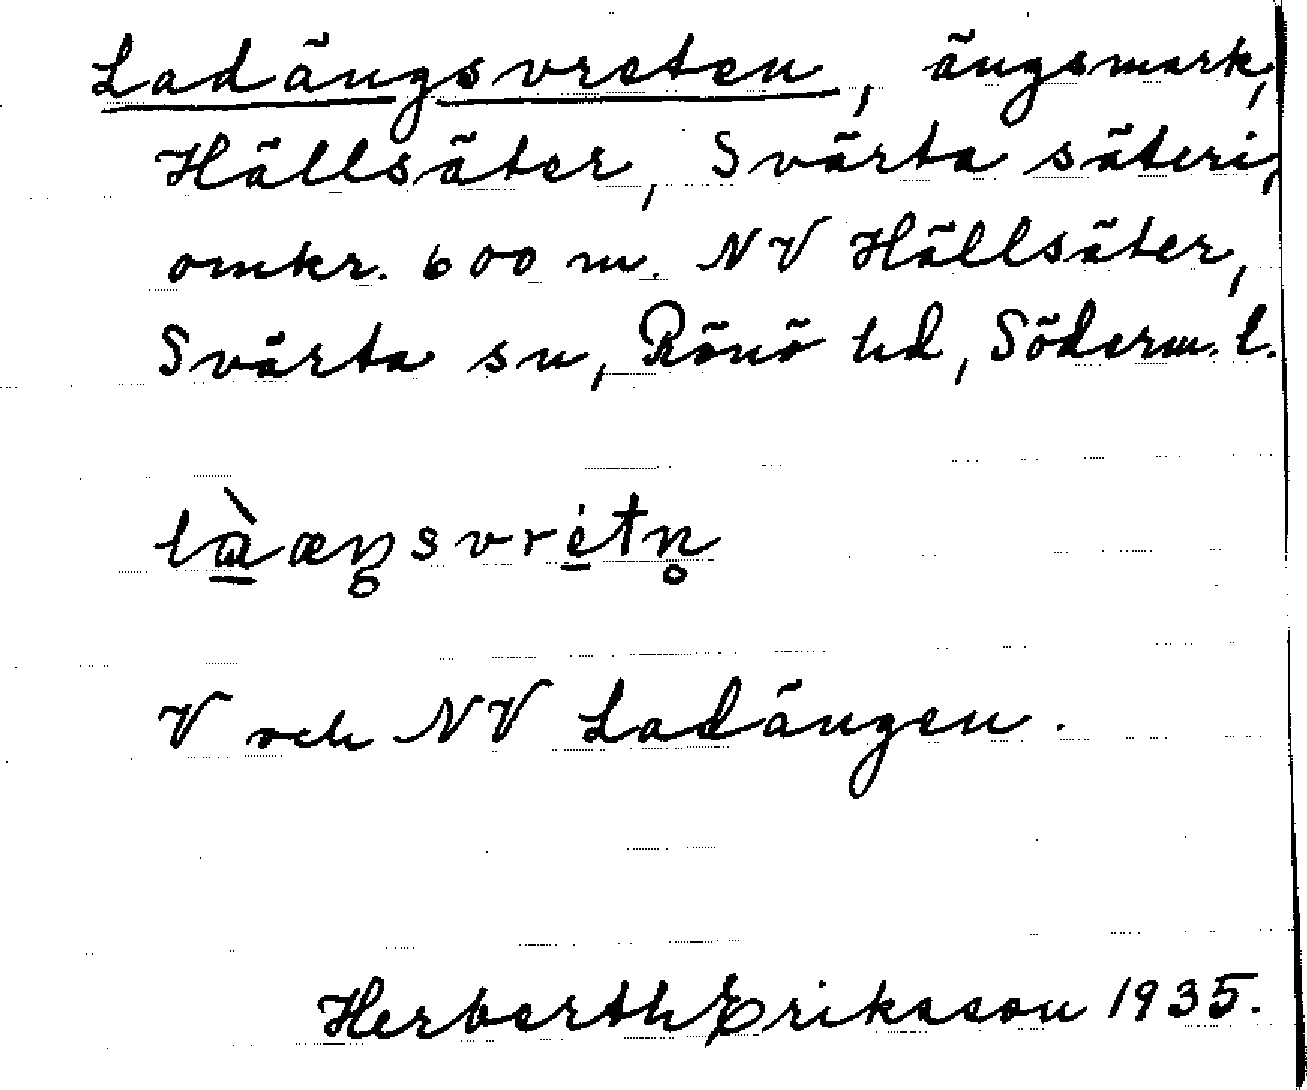 Ladängsvreten, ängsmark,
Hällsäter, Svärta säteri,
omkr. 600 m. NV Hällsäter,
Svärta sn, Rönö hd, Söderm. l.
lὰ̱æŋ̥svrė̱tn̥
V och NV Ladängen.
Herberth Eriksson 1935.